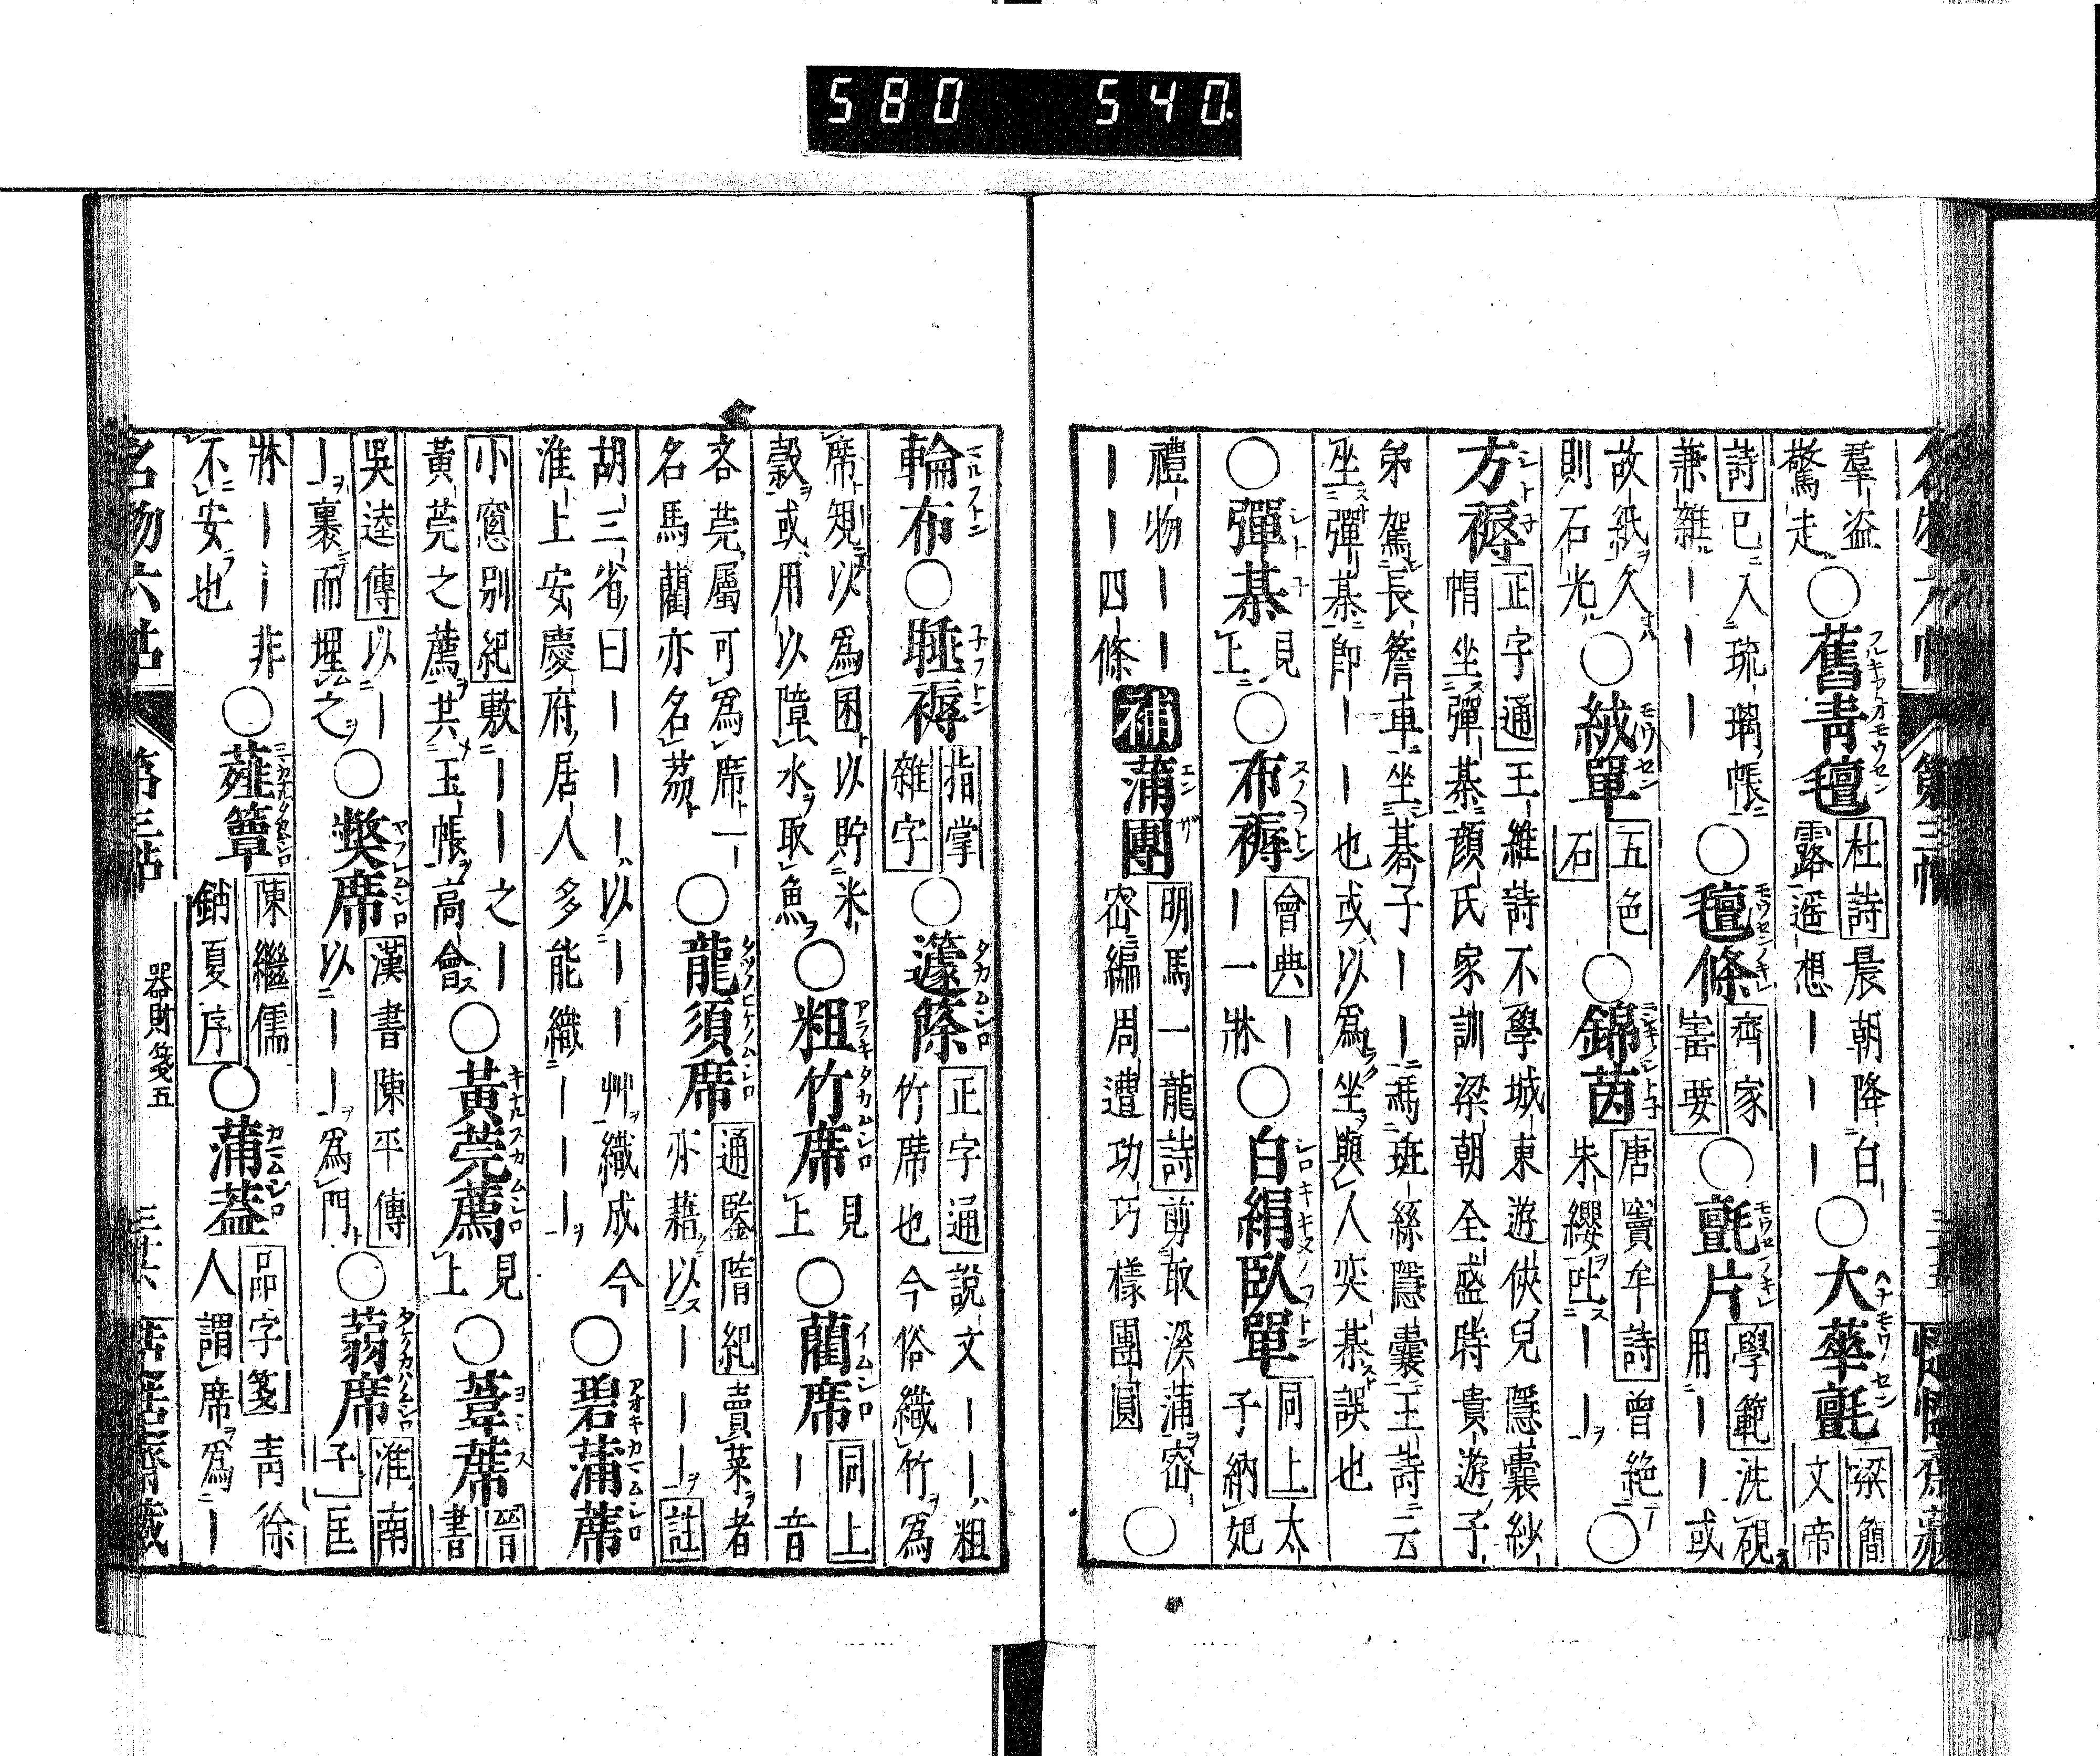 580 540
羣盜驚走○舊青氊杜詩晨朝降白露遥想｜｜｜○大華氈梁簡文帝
詩已入琉璃帳兼雜｜｜｜○氊條齊家寚要○氈片學範洗硯用｜｜或
故紙久則石光○絨單五色石○錦茵唐竇牟詩曾絶朱纓吐｜｜○
方褥正字通王維詩不學城東遊俠兒隱囊紗帽坐彈棊顔氏家訓梁朝全盛時貴遊子
弟駕長簷車坐棊子｜｜馮班絲隱囊王詩云坐彈棊即｜｜也或以爲坐與人奕棊誤也
○彈棊見上○布褥會典｜｜一牀○白絹臥單同上太子納妃
禮物｜｜｜｜四條補蒲團明馬一龍詩剪取溪蒲密密編周遭功巧樣團圓○
輪布○睡褥指掌雜字○籧篨正字通說文｜｜粗竹席也今俗織竹爲
席規以爲囷以貯米穀或用以障水取魚○粗竹席見上○藺席同上｜音
吝莞屬可爲席一名馬藺亦名茘○龍須席通鑒隋紀賣菜者亦藉以｜｜｜註
胡三省曰｜｜｜以｜｜艸織成今淮上安慶府居人多能織｜｜｜○碧蒲蓆
小窓別紀敷｜｜｜之｜黃莞之薦共玉帳高會○黃莞薦見上○葦蓆晉書
吳逵傳以｜｜裹而埋之○獘席漢書陳平傳以｜｜爲門○蒻席淮南子匡
牀｜｜非不安也○薤簟陳繼儒銷夏序○蒲葢品字箋靑徐人謂席爲｜
名物六帖 第三帖 器財箋五